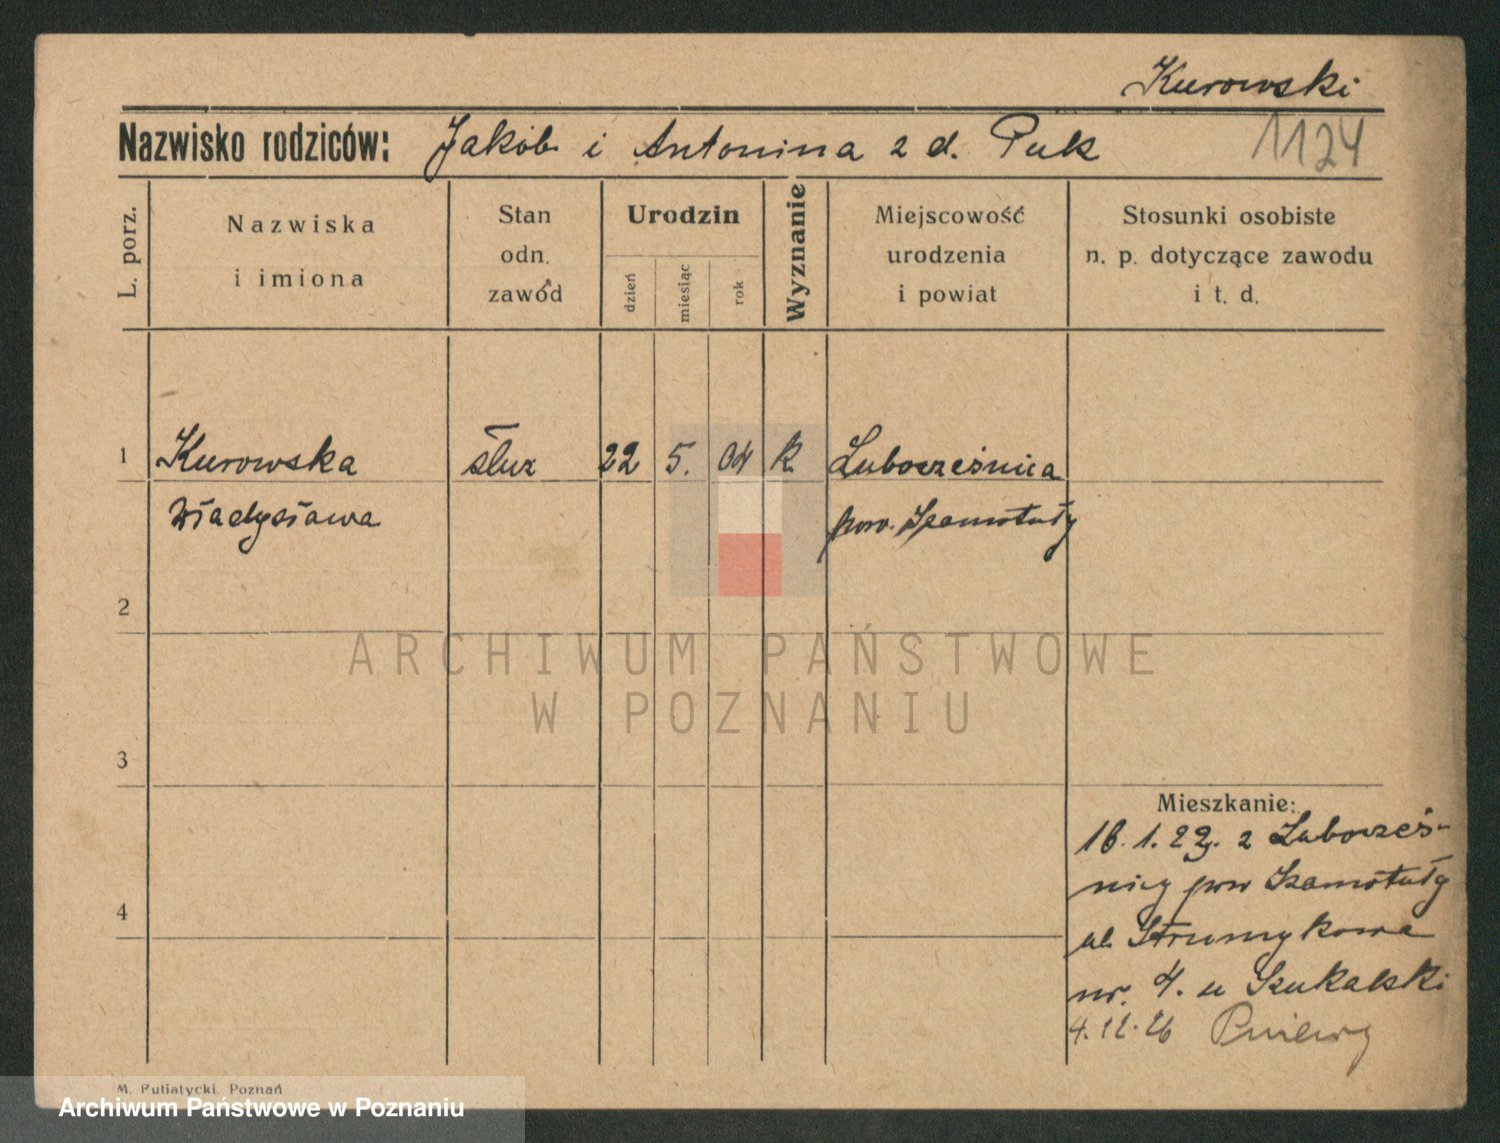 Kurowski
Nazwisko rodziców: Jakób i Antonina z d. Puk
1124
L. porz.
Nazwiska
i imiona
Stan
odn.
zawód
Urodzin
dzień
miesiąc
rok
Wyznanie
Miejscowość
urodzenia
i powiat
Stosunki osobiste
n. p. dotyczące zawodu
i t. d.
1 Kurowska służ 22 5. 04 k Lubocześnica
Władysława pow. Szamotuły
2
ARCHIWUM PAŃSTWOWE
W POZNANIU
3
Mieszkanie:
z Lubocześ-
nicy pow Szamotuły
4
ul Strumykowa
nr. 4. u Szukalski
4.12.26 Pniewy
M. Putiatycki, Poznań
Archiwum Państwowe w Poznaniu